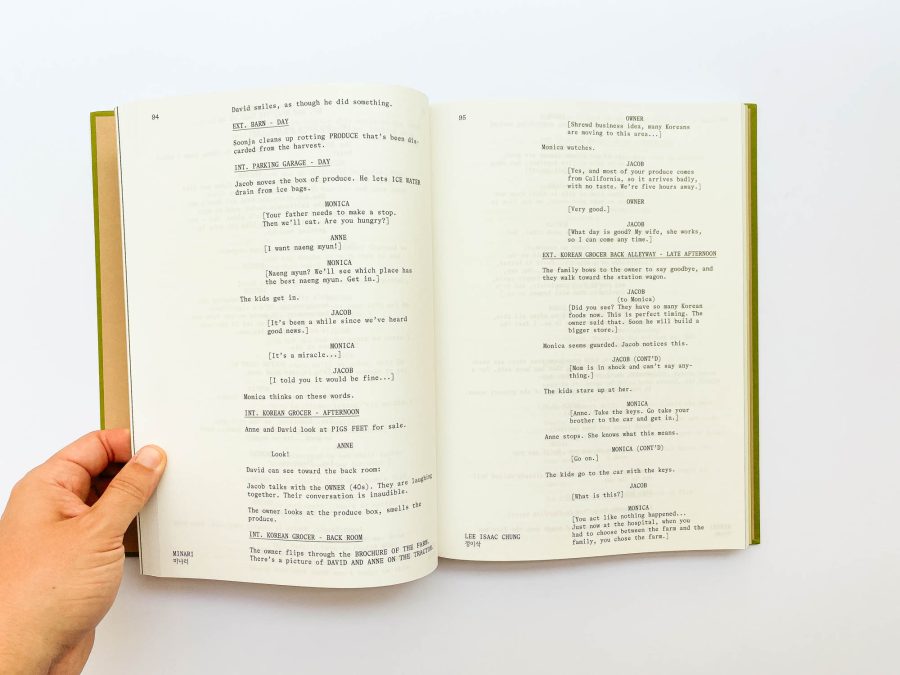 94
David smiles, as though he did something.
EXT. BARN - DAY
Soonja cleans up rotting PRODUCE that's been dis-
carded from the harvest.
INT. PARKING GARAGE - DAY
Jacob moves the box of produce. He lets ICE WATER
drain from ice bags.
MONICA
[Your father needs to make a stop.
Then we'll eat. Are you hungry?]
ANNE
[I want naeng myun!]
MONICA
[Naeng myun? We'll see which place has
the best naeng myun. Get in.]
The kids get in.
JACOB
[It's been a while since we've heard
good news.]
MONICA
[It's a miracle...]
JACOB
[I told you it would be fine...]
Monica thinks on these words.
INT. KOREAN GROCER - AFTERNOON
Anne and David look at PIGS FEET for sale.
ANNE
Look!
David can see toward the back room:
Jacob talks with the OWNER (40s). They are laughing
together. Their conversation is inaudible.
The owner looks at the produce box, smells the
produce.
INT. KOREAN GROCER - BACK ROOM
The owner flips through the BROCHURE OF THE FARM.
There's a picture of DAVID AND ANNE ON THE TRACTOR.
MINARI
미나리
95
OWNER
[Shrewd business idea, many Koreans
are moving to this area...]
Monica watches.
JACOB
[Yes, and most of your produce comes
from California, so it arrives badly,
with no taste. We're five hours away.]
OWNER
[Very good.]
JACOB
[What day is good? My wife, she works,
so I can come any time.]
EXT. KOREAN GROCER BACK ALLEYWAY - LATE AFTERNOON
The family bows to the owner to say goodbye, and
they walk toward the station wagon.
JACOB
(to Monica)
[Did you see? They have so many Korean
foods now. This is perfect timing. The
owner said that. Soon he will build a
bigger store.]
Monica seems guarded. Jacob notices this.
JACOB (CONT'D)
[Mom is in shock and can't say any-
thing.]
The kids stare up at her.
MONICA
[Anne. Take the keys. Go take your
brother to the car and get in.]
Anne stops. She knows what this means.
MONICA (CONT'D)
[Go on.]
The kids go to the car with the keys.
JACOB
[What is this?]
MONICA
[You act like nothing happened...
Just now at the hospital, when you
had to choose between the farm and the
family, you chose the farm.]
LEE ISAAC CHUNG
정이삭